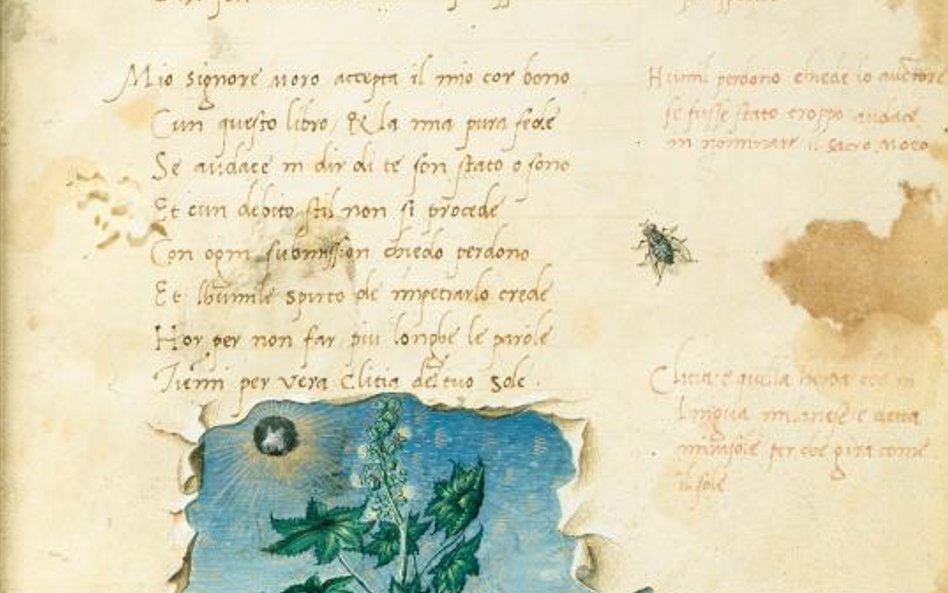 Mio signore moro accepta il mio cor bono
Cun questo libro, & la mia pura fede
Se audace in dir di te son stato o sono
Et cun debito stil non si procede
Con ogni submission chiedo perdono
Et lhumile spirto de impetrarlo crede
Hor per non far piu longhe le parole
Tiemi per vera Clitia del tuo Sole.
Humil perdono chiede lo auctore
se fusse stato troppo audace
in nominare il sacro moro
Clitia e quella herba che in
lingua milanese e decta
per che gira come
il sole